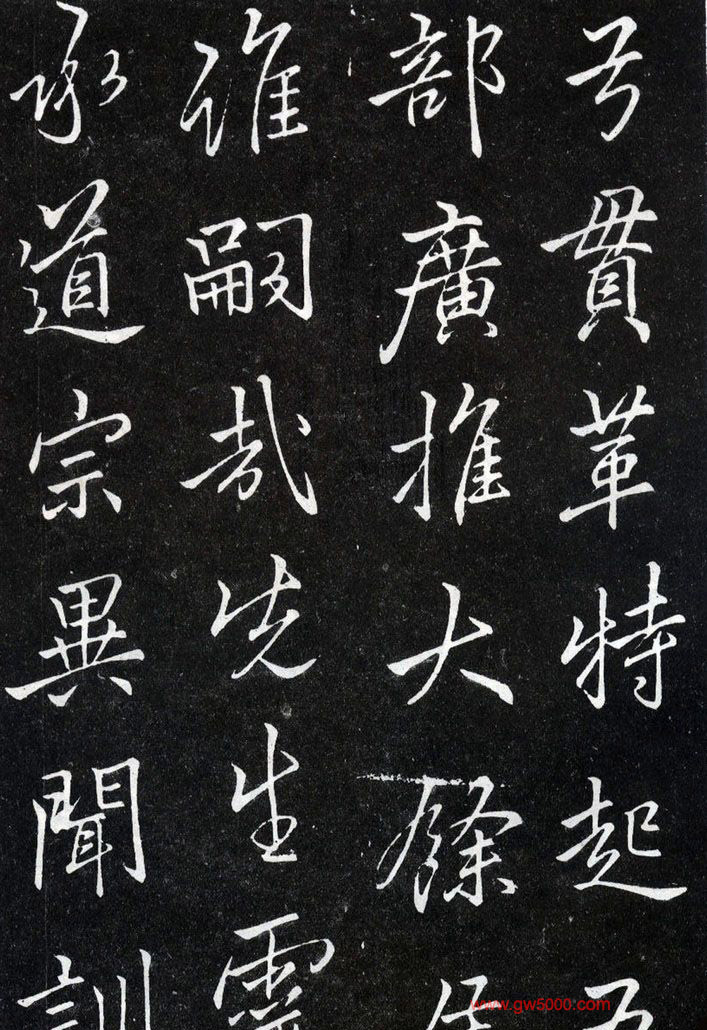 弓貫革特起
部廣推大餘
誰嗣哉先生靈
承道宗異聞訓
www.gw5000.com